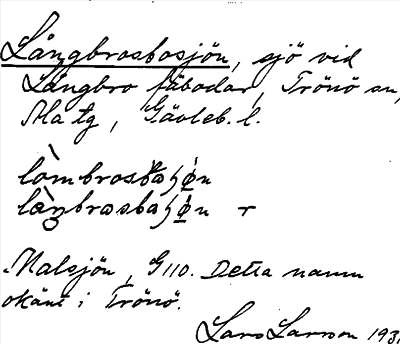 Långbrosbosjön, sjö vid
Långbro fäbodar, Trönö sn,
Ma tg, Gävleb. l.
lòmbrosbaʃǿn
làŋbrasbaʃǿn r
Malsjön, G110. Detta namn
okänt i Trönö.
Lars Larsson 193